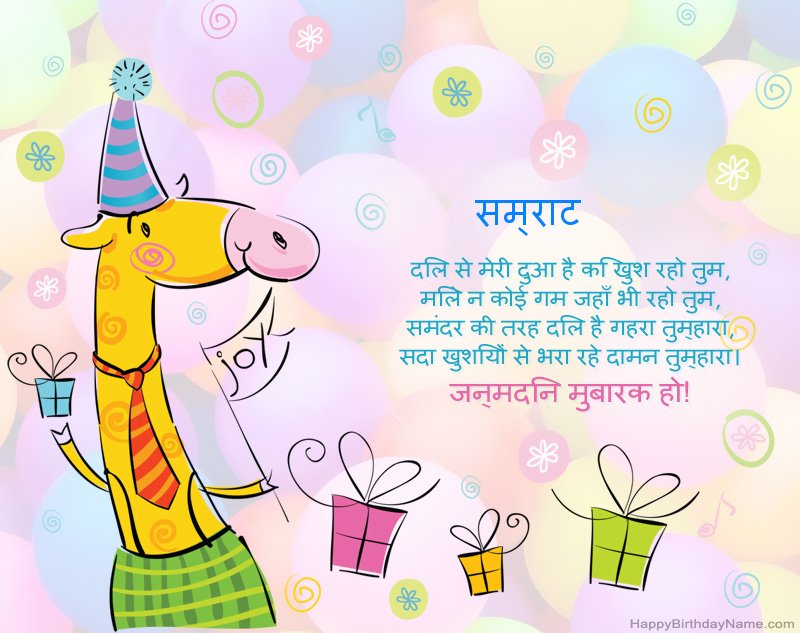 सम्राट
दलि से मेरी दुआ है कि खुश रहो तुम,
मलिे न कोई गम जहाँ भी रहो तुम,
समंदर की तरह दलि है गहरा तुम्हारा,
सदा खुशयिों से भरा रहे दामन तुम्हारा।
जन्मदनि मुबारक हो!
joy
HappyBirthdayName.com